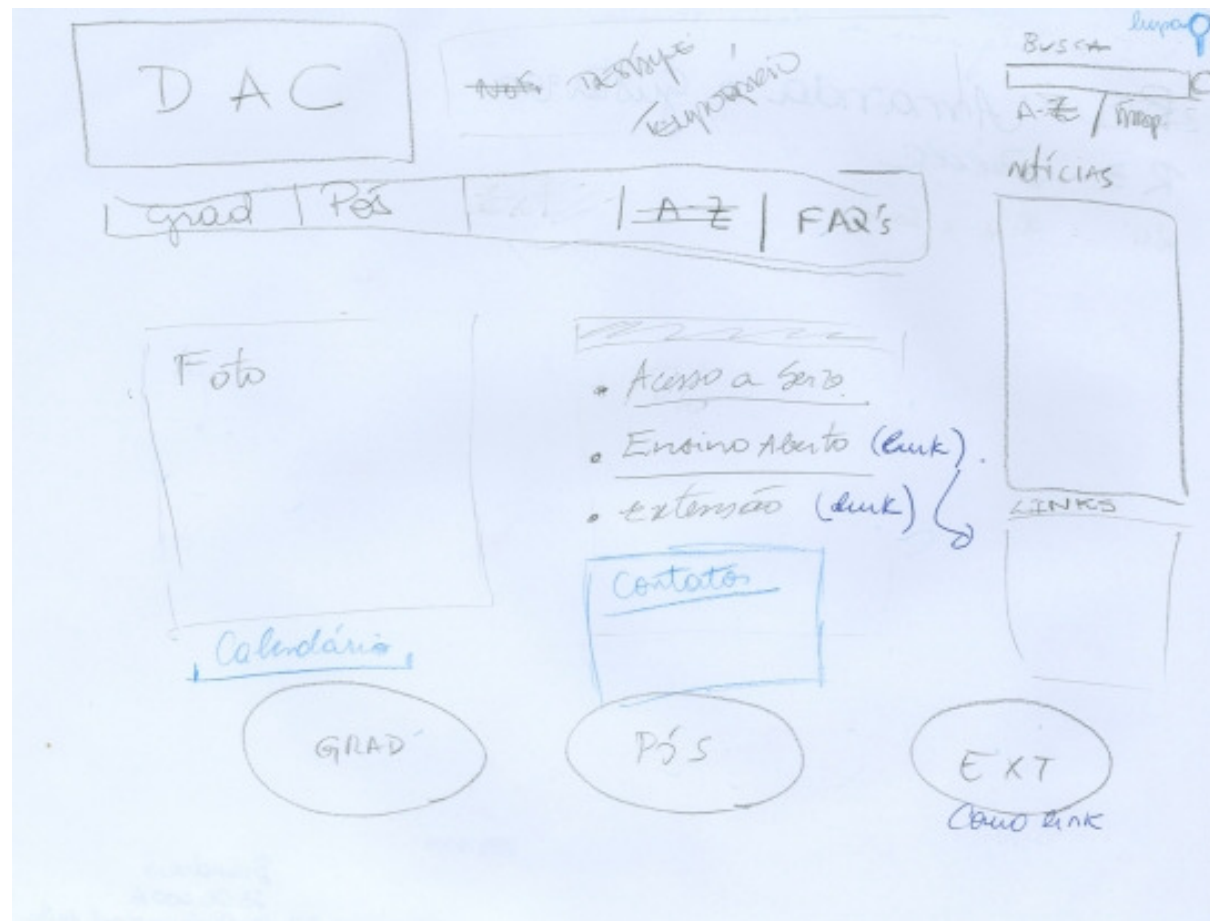 lupa
BUSCA
D A C
DESTAQUE
TEMPORÁRIO
A-Z /
NOTÍCIAS
grad | Pós | A-Z | FAQ's
Foto
• Acesso a Serv.
• Ensino Aberto (link).
• extensão (link)
LINKS
Contatos
Calendário
GRAD
PÓS
EXT
Como link